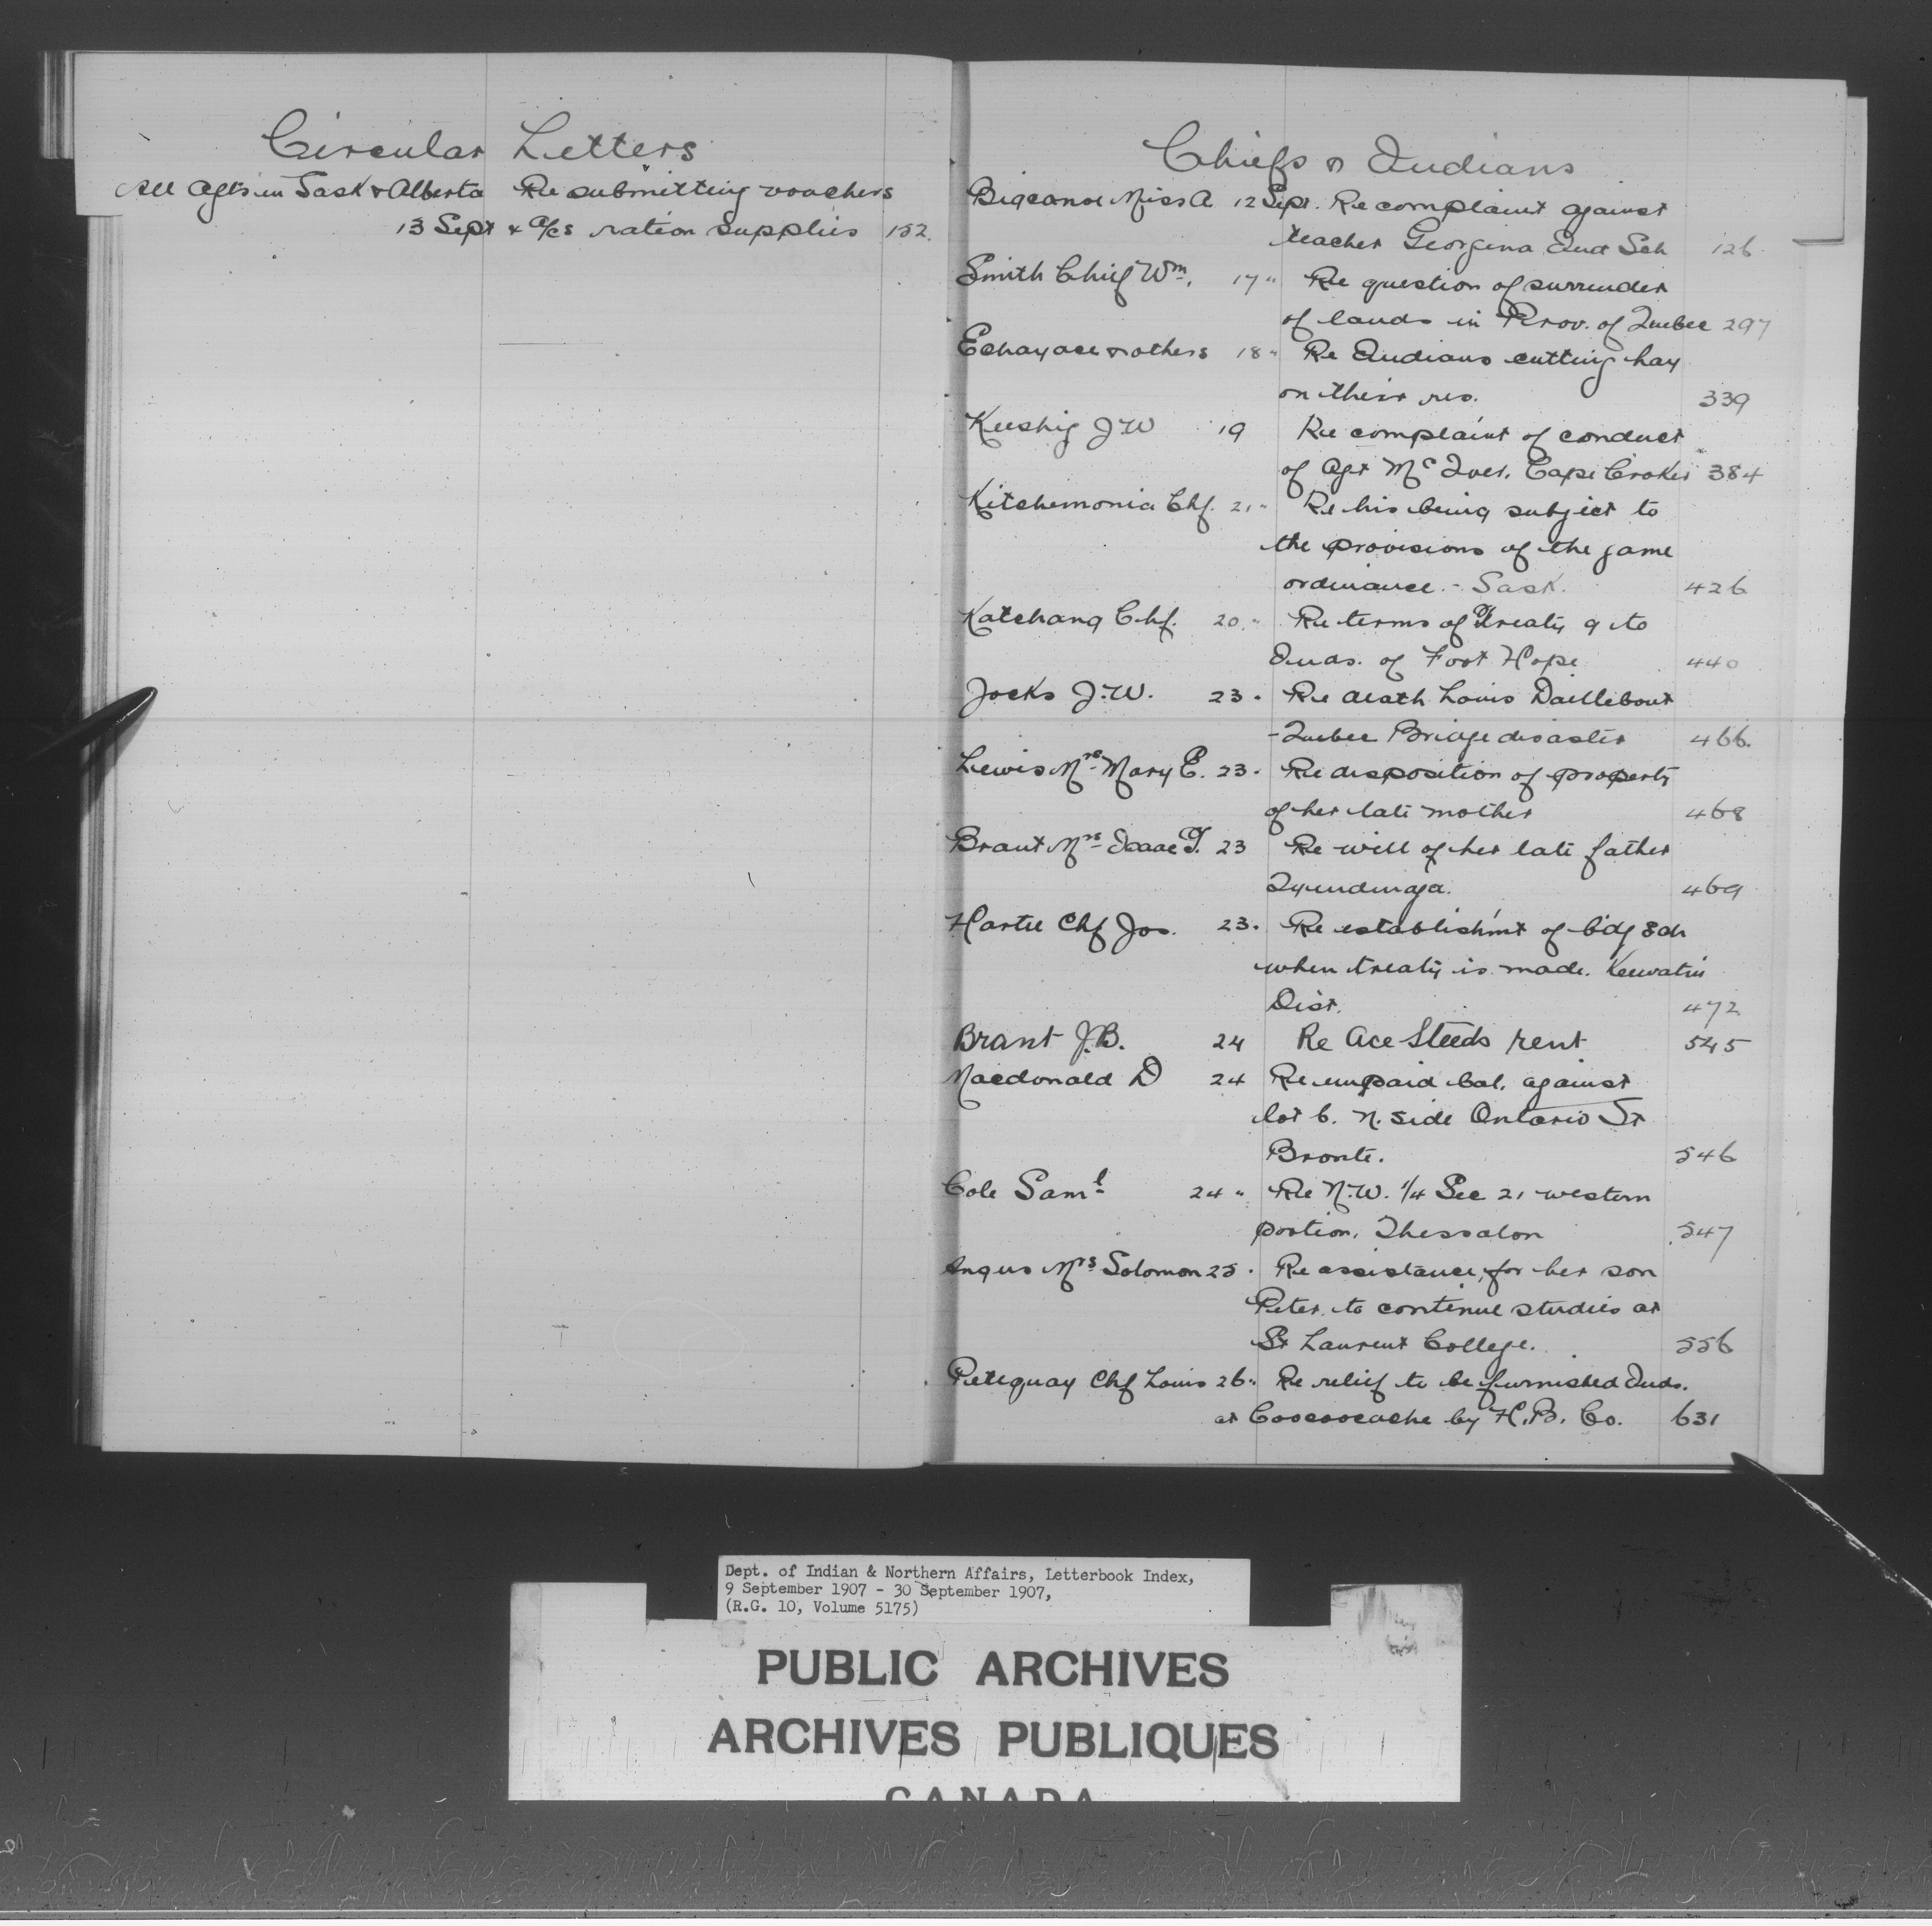 Circular Letters
All Agts in Sask & Alberta Re submitting vouchers
13 Sept & a/cs ration supplies 152.
Chiefs & Indians
Bigcanoe Miss A 12 Sept. Re complaint against
teacher Georgina Ind Sch 126
Smith Chief Wm. 17 " Re question of surrender
of lands in Prov. of Quebec 297
& others 18 " Re Indians cutting hay
on their res. 339
Keeshig J W 19 Re complaint of conduct
of Agt McIver, Cape Croker 384
Kitchemonia Chf. 21 " Re his being subject to
the provisions of the game
ordinance. - Sask. 426
Katchang Chf. 20 " Re terms of Treaty 9 to
Inds. of Foot Hope 440
Jocks J. W. 23 " Re death Louis Daillebout
- Quebec Bridge disaster 466.
Lewis Mrs Mary E. 23 " Re disposition of property
of her late mother 468
Brant Mrs Isaac T. 23 Re will of her late father
Tyendinaga. 469
Hartie Chf Jos. 23 " Re establishm't of bdg Sch
when treaty is made. Keewatin
Dist. 472
Brant J. B. 24 Re Ace Steeds rent 545
Macdonald D 24 Re unpaid bal. against
lot 6. N. side Ontario St
Bronte. 546
Cole Saml 24 " Re N. W. 1/4 Sec 21 western
portion, Thessalon 547
Angus Mrs Solomon 25 " Re assistance for her son
Peter to continue studies at
St Laurent College. 556
Petiquay Chf Louis 26 " Re relief to be furnished Inds.
at Coocoocache by H. B. Co. 631
Dept. of Indian & Northern Affairs, Letterbook Index,
9 September 1907 - 30 September 1907,
(R.G. 10, Volume 5175)
PUBLIC ARCHIVES
ARCHIVES PUBLIQUES
CANADA